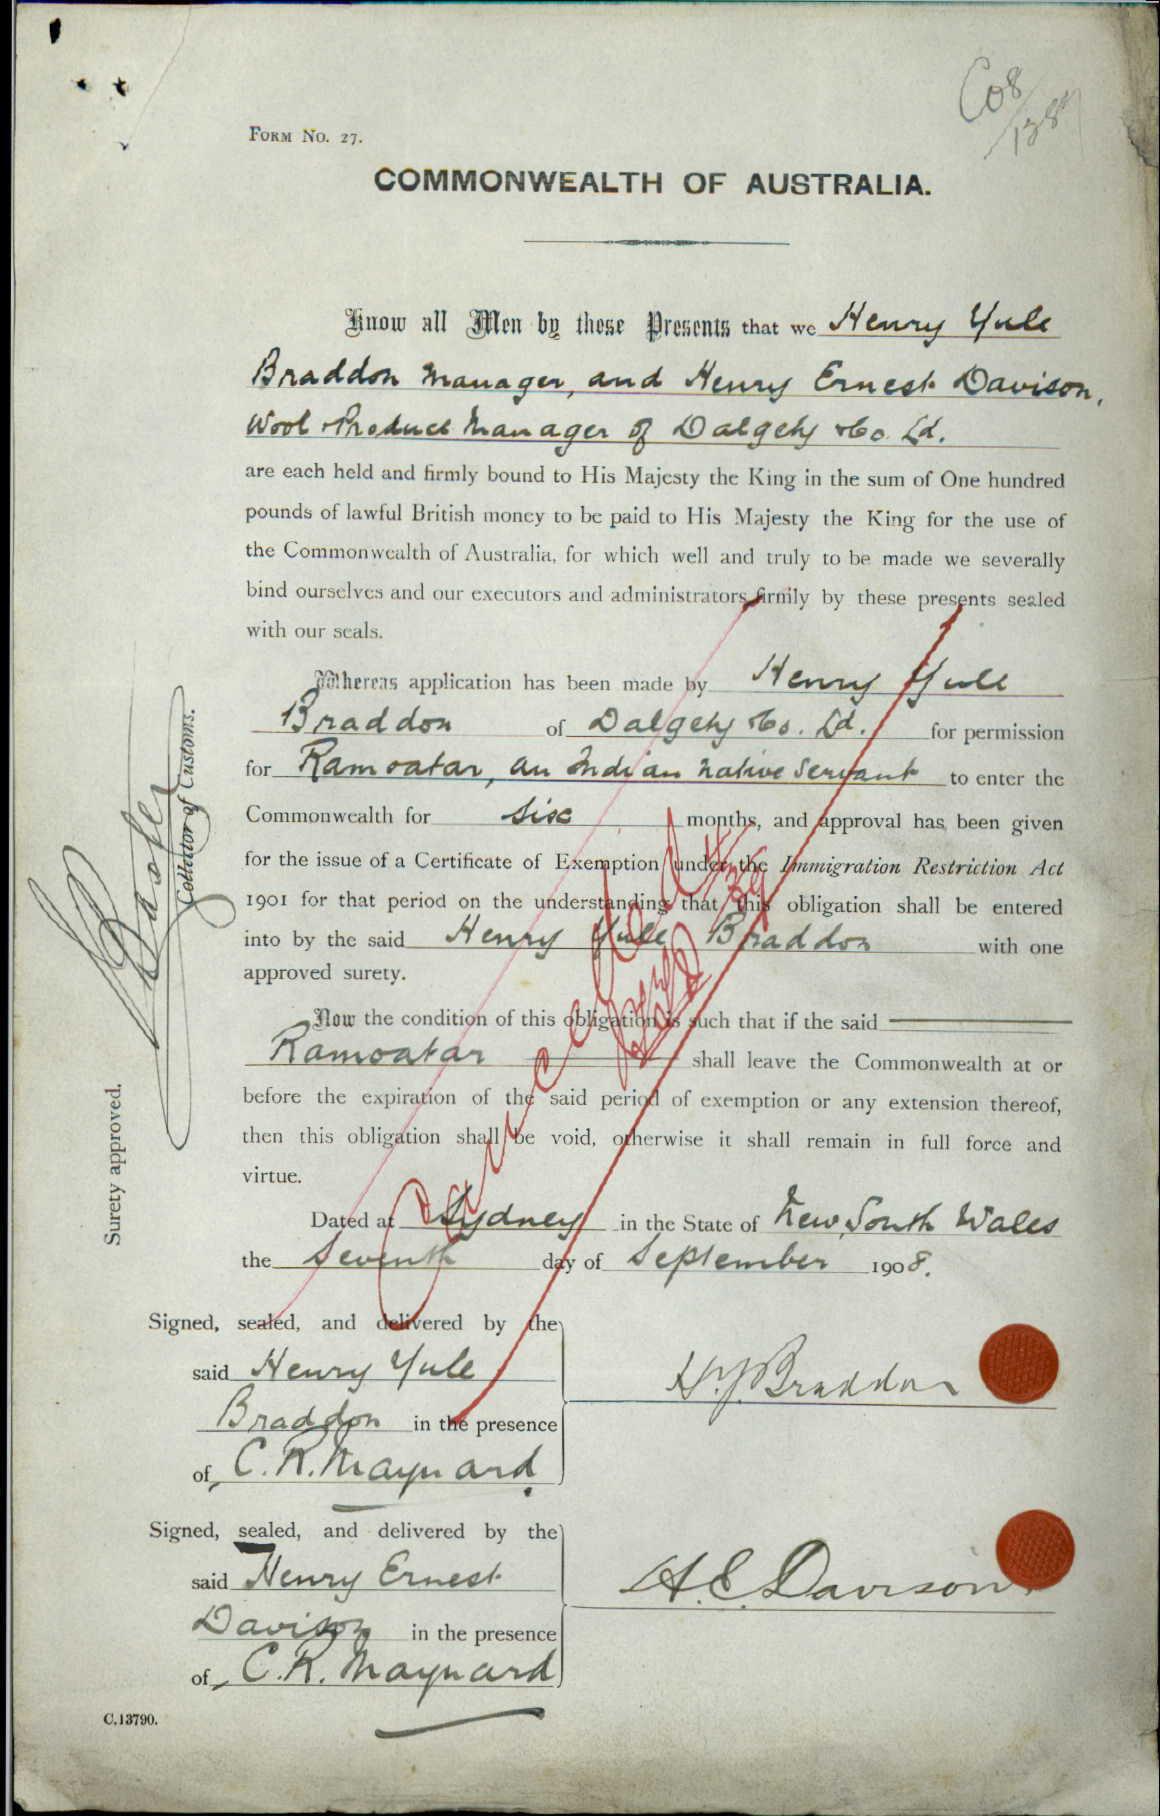 Co8
FORM NO. 27.
COMMONWEALTH OF AUSTRALIA.
Know all Men by these Presents that we Henry Yule
Braddon Manager, and Henry Ernest Davison,
Wool & Produce Manager of Dalgety & Co. Ld.
are each held and firmly bound to His Majesty the King in the sum of One hundred
pounds of lawful British money to be paid to His Majesty the King for the use of
the Commonwealth of Australia, for which well and truly to be made we severally
bind ourselves and our executors and administrators firmly by these presents sealed
with our seals.
Whereas application has been made by Henry Yule
Braddon of Dalgety & Co. Ld. for permission
for Ramoatar, an Indian Native Servant to enter the
Commonwealth for six months, and approval has been given
for the issue of a Certificate of Exemption under the Immigration Restriction Act
1901 for that period on the understanding that this obligation shall be entered
into by the said Henry Yule Braddon with one
approved surety.
Now the condition of this obligation is such that if the said
Ramoatar shall leave the Commonwealth at or
before the expiration of the said period of exemption or any extension thereof,
then this obligation shall be void, otherwise it shall remain in full force and
virtue.
Dated at Sydney in the State of New South Wales
the Seventh day of September 1908.
Signed, sealed, and delivered by the
said Henry Yule
Braddon in the presence
of C. R. Maynard
H. Y. Braddon
Signed, sealed, and delivered by the
said Henry Ernest
Davison in the presence
of C. R. Maynard
H. E. Davison
C.13790.
Surety approved.
Collector of Customs.
Cancelled